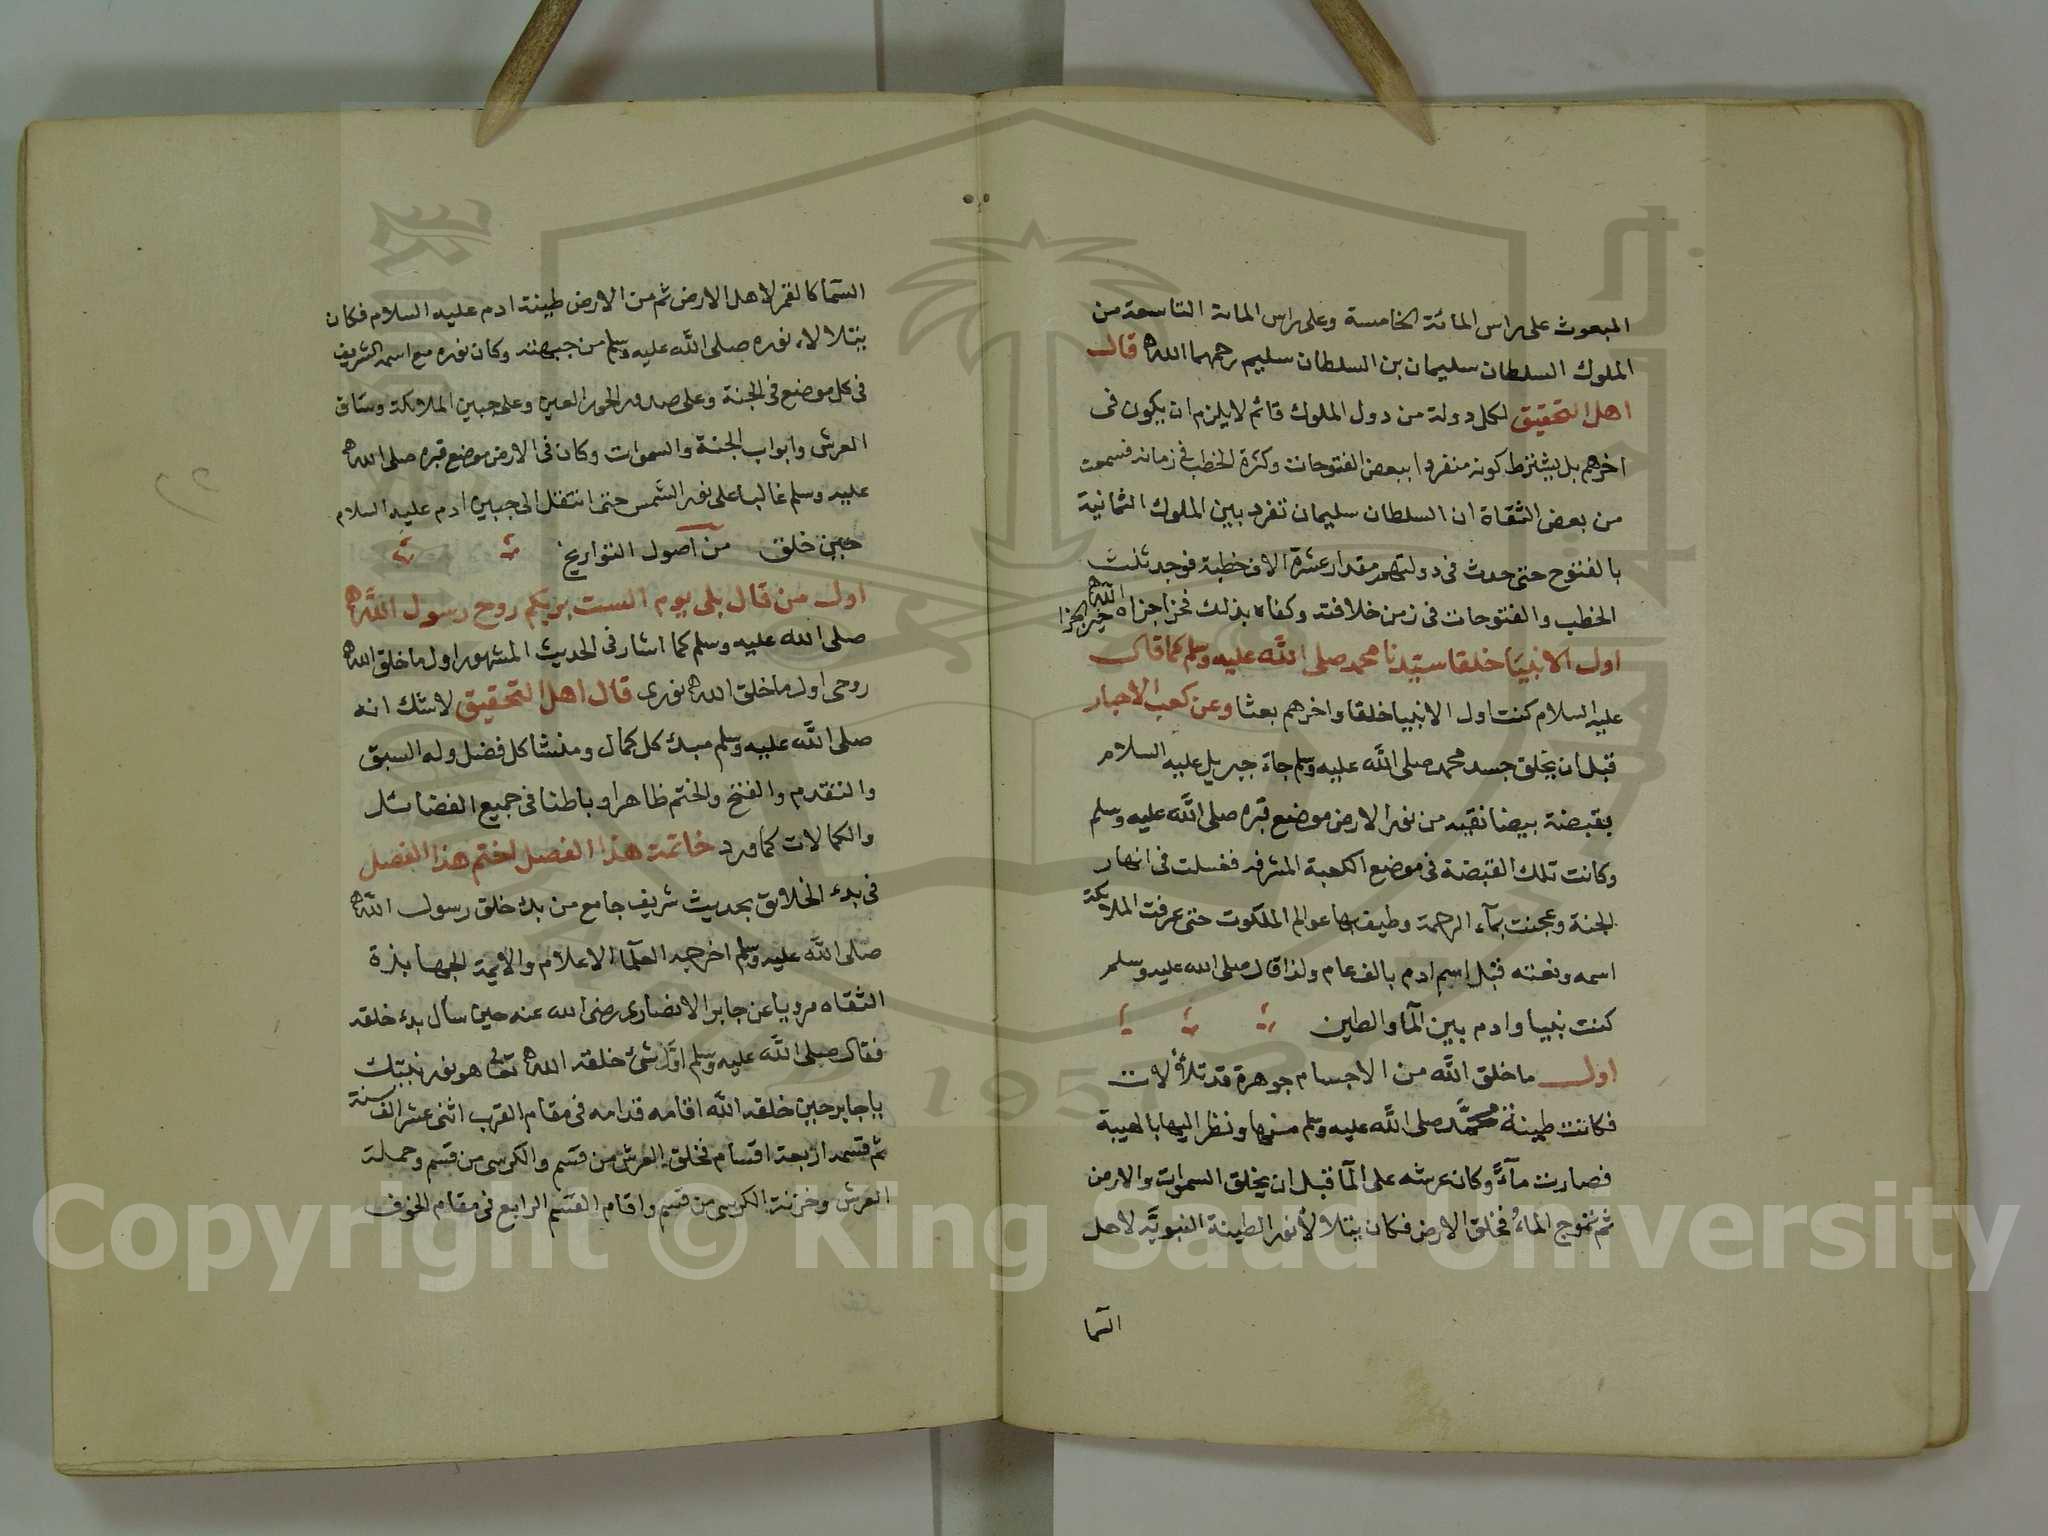 المبعوث على راس المائة الخامسة وعلى راس المائة التاسعة من
الملوك السلطان سليمان بن السلطان سليم رحمهما الله قال
اهل التحقيق لكل دولة من دول الملوك قائم لا يلزم ان يكون فى
اخرهم بل يشترط كونه منفردا ببعض الفتوحات وكثرة الخطب فى زمانه فسمعت
من بعض الثقاة ان السلطان سليمان تفرد بين الملوك العثمانية
بالفتوح حتى حدث فى دولتهم مقدار عشرة الاف خطبة فوجد ثلث
الخطب والفتوحات فى زمن خلافته وكفاه بذلك فخرا جزاه الله خير الجزا
اول الانبيا خلقا سيدنا محمد صلى الله عليه وسلم كما قال
عليه السلام كنت اول الانبيا خلقا واخرهم بعثا وعن كعب الاحبار
قبل ان يخلق جسد محمد صلى الله عليه وسلم جاء جبريل عليه السلام
بقبضة بيضا نقيه من نور الارض موضع قبره صلى الله عليه وسلم
وكانت تلك القبضة فى موضع الكعبة المشرفه فغسلت فى انهار
الجنة وعجنت بماء الرحمة وطيف بها عوالم الملكوت حتى عرفت الملايكة
اسمه ونعته قبل اسم ادم بالف عام ولذا قال صلى الله عليه وسلم
كنت نبيا وادم بين الما والطين
اول ما خلق الله من الاجسام جوهرة قد تلألأت
فكانت طينة محمد صلى الله عليه وسلم منها ونظر اليها بالهيبة
فصارت مآء وكان عرشه على المآ قبل ان يخلق السموات والارض
ثم تموج الماء فخلق الارض فكان يتلالأ نور الطينة النبوية لاهل
السما
السمآ كالقمر لاهل الارض ثم من الارض طينة ادم عليه السلام فكان
يتلالاء نوره صلى الله عليه وسلم من جبهته وكان نوره مع اسمه الشريف
فى كل موضع فى الجنة وعلى صدور الحور العين وعلى جبين الملايكة وساق
العرش وابواب الجنة والسموات وكان فى الارض موضع قبره صلى الله
عليه وسلم غالبا على نور الشمس حتى انتقل الى جبين ادم عليه السلام
حين خلق من اصول التواريخ
اول من قال بلى يوم الست بربكم روح رسول الله
صلى الله عليه وسلم كما اشار فى الحديث المشهور اول ما خلق الله
روحى اول ما خلق الله نورى قال اهل التحقيق لا شك انه
صلى الله عليه وسلم مبدٔ كل كمال ومنشا كل فضل وله السبق
والتقدم والفتح والختم ظاهرا وباطنا فى جميع الفضائل
والكمالات كما ورد خاتمة هذا الفصل لختم هذا الفصل
فى بدء الخلائق بحديث شريف جامع من بدٔ خلق رسول الله
صلى الله عليه وسلم اخرجه العلما الاعلام والائمة الجهابذة
الثقاه مرويا عن جابر الانصارى رضى الله عنه حين سأل بدء خلقه
فقال صلى الله عليه وسلم اول شئ خلقه الله تعالى هو نور نبيك
يا جابر حين خلقه الله اقامه قدامه فى مقام القرب اثنى عشر الف سنة
ثم قسمه اربعة اقسام فخلق العرش من قسم والكرسى من قسم وحملة
العرش وخزنة الكرسى من قسم واقام القسم الرابع فى مقام الخوف
Copyright © King Saud University
1957